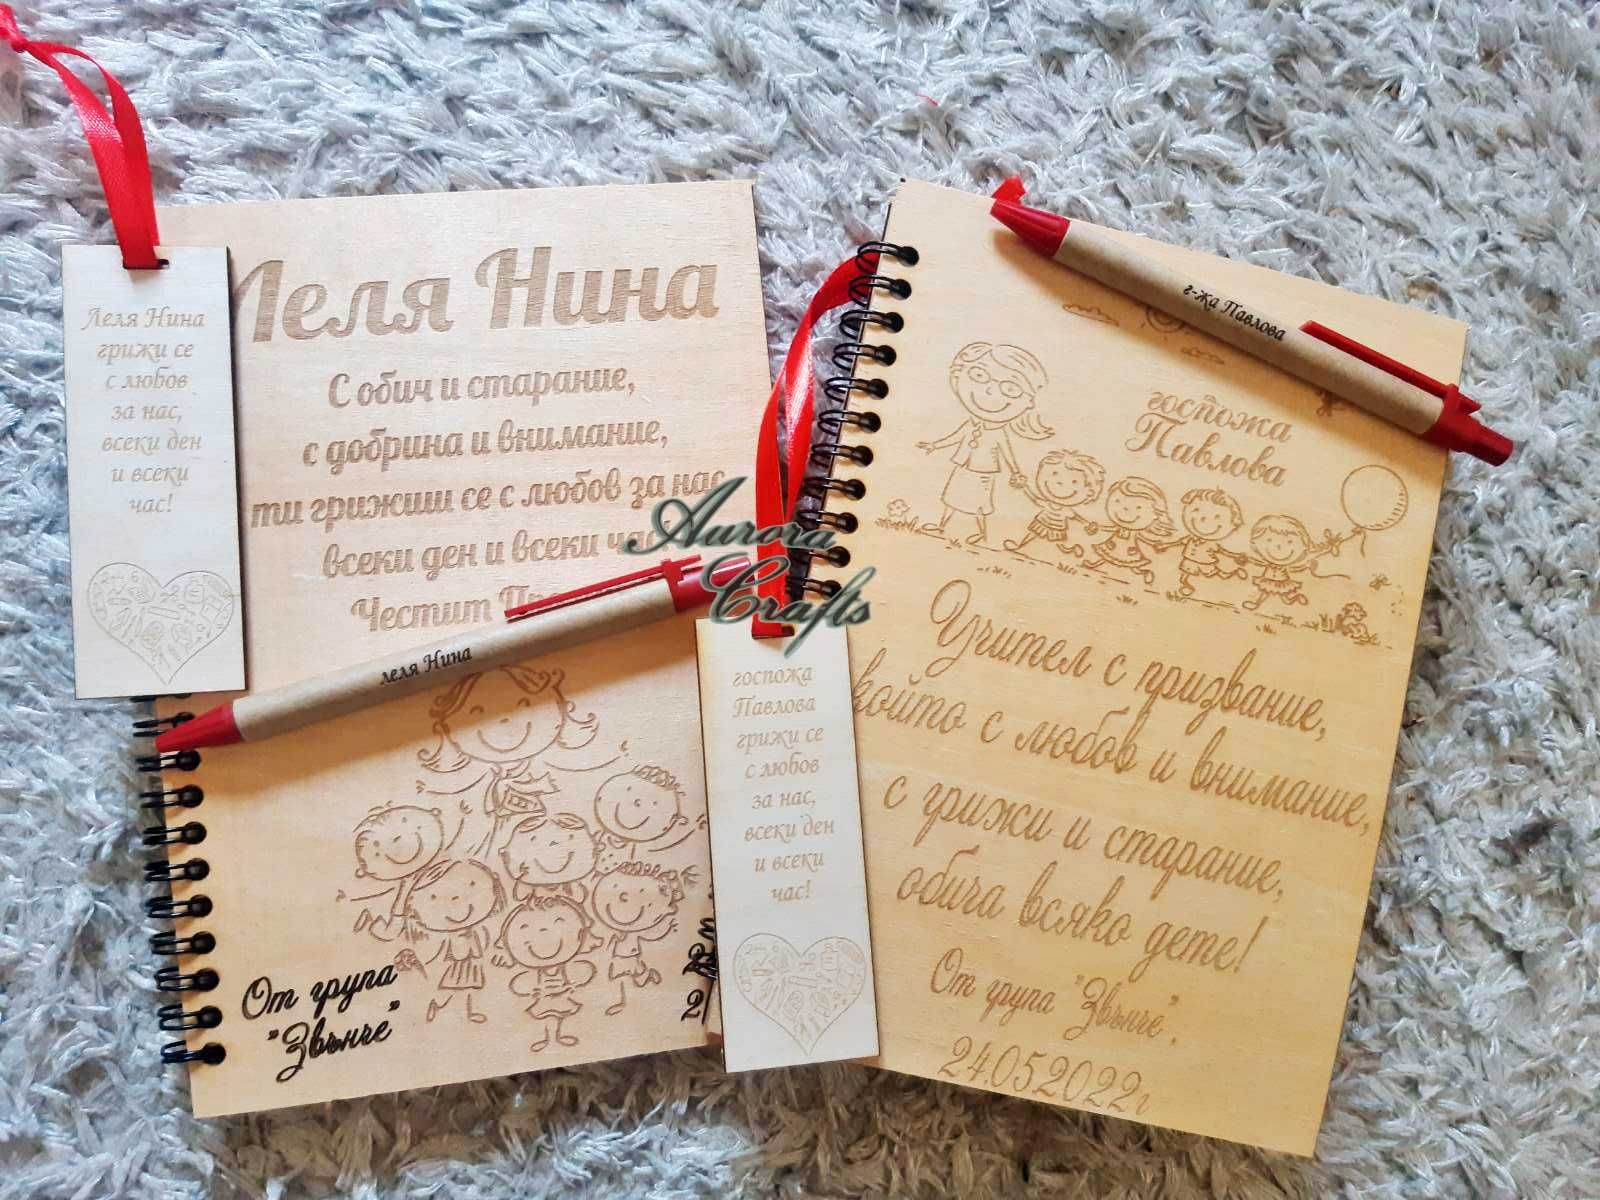 Леля Нина
С обич и старание,
с добрина и внимание,
ти грижиш се с любов за нас
всеки ден и всеки час
Честит
От група
"Звънче"
Леля Нина
грижи се
с любов
за нас,
всеки ден
и всеки
час!
леля Нина
Aurora
Crafts
госпожа
Павлова
грижи се
с любов
за нас,
всеки ден
и всеки
час!
г-жа Павлова
госпожа
Павлова
Учител с призвание,
който с любов и внимание,
с грижи и старание,
обича всяко дете!
От група "Звънче",
24.05.2022г